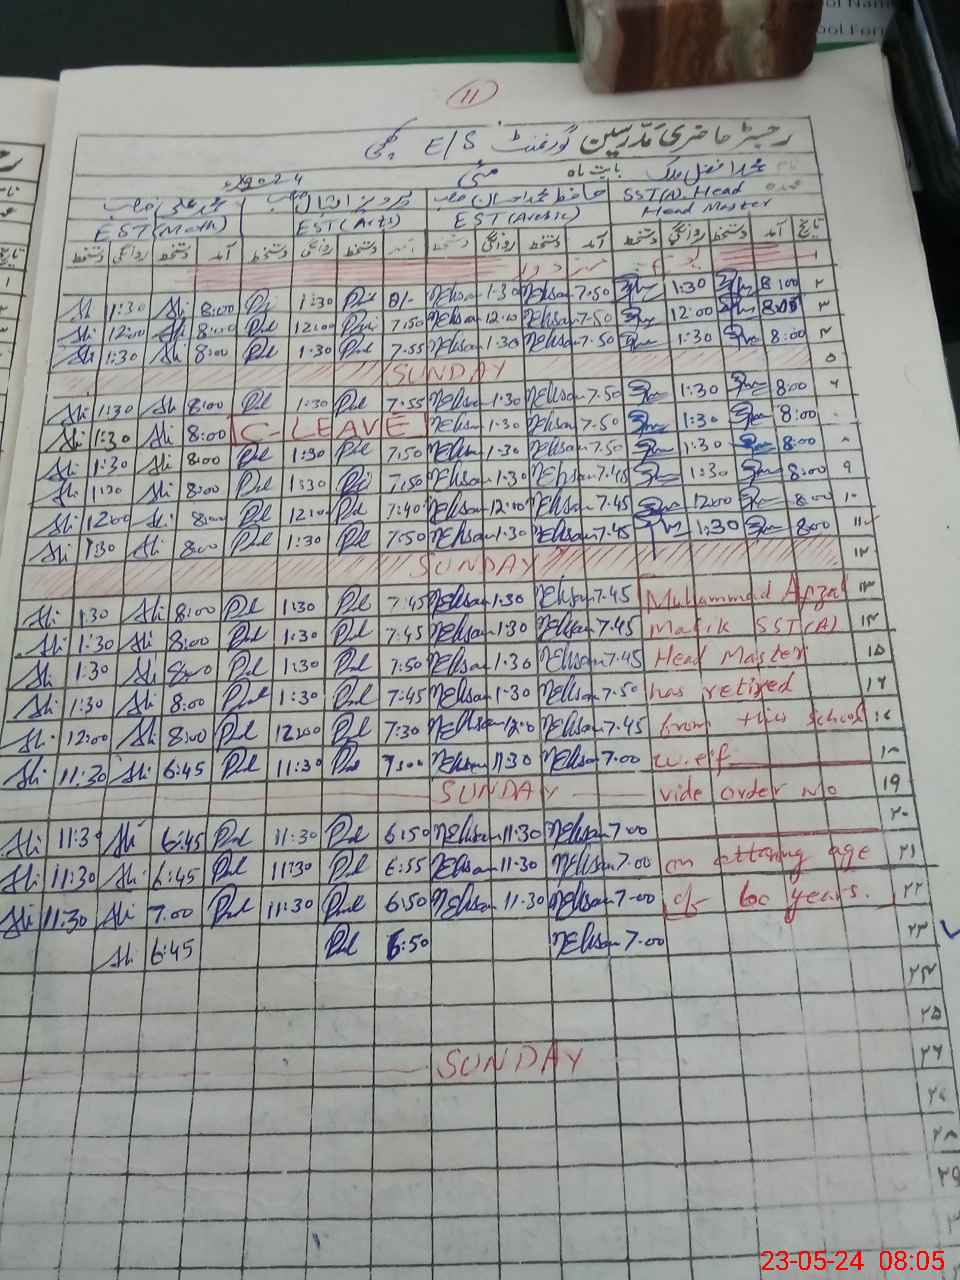 ool Nam
ool For
11
رجسٹر حاضری مدرسین گورنمنٹ E/S
محمد افضل ملک بابت ماہ مئی 2024
SST(A) Head
EST (Math) EST (Arts) EST (Arabic) Head Master
تاریخ آمد دستخط روانگی دستخط آمد دستخط روانگی دستخط آمد دستخط روانگی دستخط آمد دستخط روانگی دستخط
۱
Ali 1:30 Ali 8:00 1:30 8/- MEhsan 1:30 MEhsan 7.50 1:30 8:00 ۲
Ali 12:00 Ali 8:00 12:00 7:50 MEhsan 12:00 MEhsan 7.50 12:00 8:05 ۳
Ali 1:30 Ali 8:00 1:30 7:55 MEhsan 1:30 MEhsan 7.50 1:30 8:00 ۴
SUNDAY ۵
Ali 1:30 Ali 8:00 1:30 7:55 MEhsan 1:30 MEhsan 7.50 1:30 8:00 ۶
Ali 1:30 Ali 8:00 C-LEAVE MEhsan 1:30 MEhsan 7.50 1:30 8:00
Ali 1:30 Ali 8:00 1:30 7:50 MEhsan 1:30 MEhsan 7.50 1:30 8:00 ۸
Ali 1:30 Ali 8:00 1:30 7:50 MEhsan 1:30 MEhsan 7.45 1:30 8:00 ۹
Ali 12:00 Ali 8:00 12:00 7:40 MEhsan 12:00 MEhsan 7.45 12:00 8:00 ۱۰
Ali 1:30 Ali 8:00 1:30 7:50 MEhsan 1:30 MEhsan 7.45 1:30 8:00 ۱۱
SUNDAY ۱۲
Ali 1:30 Ali 8:00 1:30 7:45 MEhsan 1:30 MEhsan 7.45 Muhammad Afzal ۱۳
Ali 1:30 Ali 8:00 1:30 7:45 MEhsan 1:30 MEhsan 7.45 Malik SST(A) ۱۴
Ali 1:30 Ali 8:00 1:30 7:50 MEhsan 1:30 MEhsan 7.45 Head Master ۱۵
Ali 1:30 Ali 8:00 1:30 7:45 MEhsan 1:30 MEhsan 7.50 has retired ۱۶
Ali 12:00 Ali 8:00 12:00 7:30 MEhsan 12:00 MEhsan 7.45 from this school ۱۷
Ali 11:30 Ali 6:45 11:30 7:00 MEhsan 11:30 MEhsan 7.00 w.e.f ۱۸
SUNDAY vide order No ۱۹
Ali 11:30 Ali 6:45 11:30 6:50 MEhsan 11:30 MEhsan 7.00 ۲۰
Ali 11:30 Ali 6:45 11:30 6:55 MEhsan 11.30 MEhsan 7.00 on attaining age ۲۱
Ali 11:30 Ali 7.00 11:30 6:50 MEhsan 11.30 MEhsan 7.00 of 60 years. ۲۲
Ali 6:45 6:50 MEhsan 7.00 ۲۳
۲۴
۲۵
SUNDAY ۲۶
۲۷
۲۸
۲۹
23-05-24 08:05